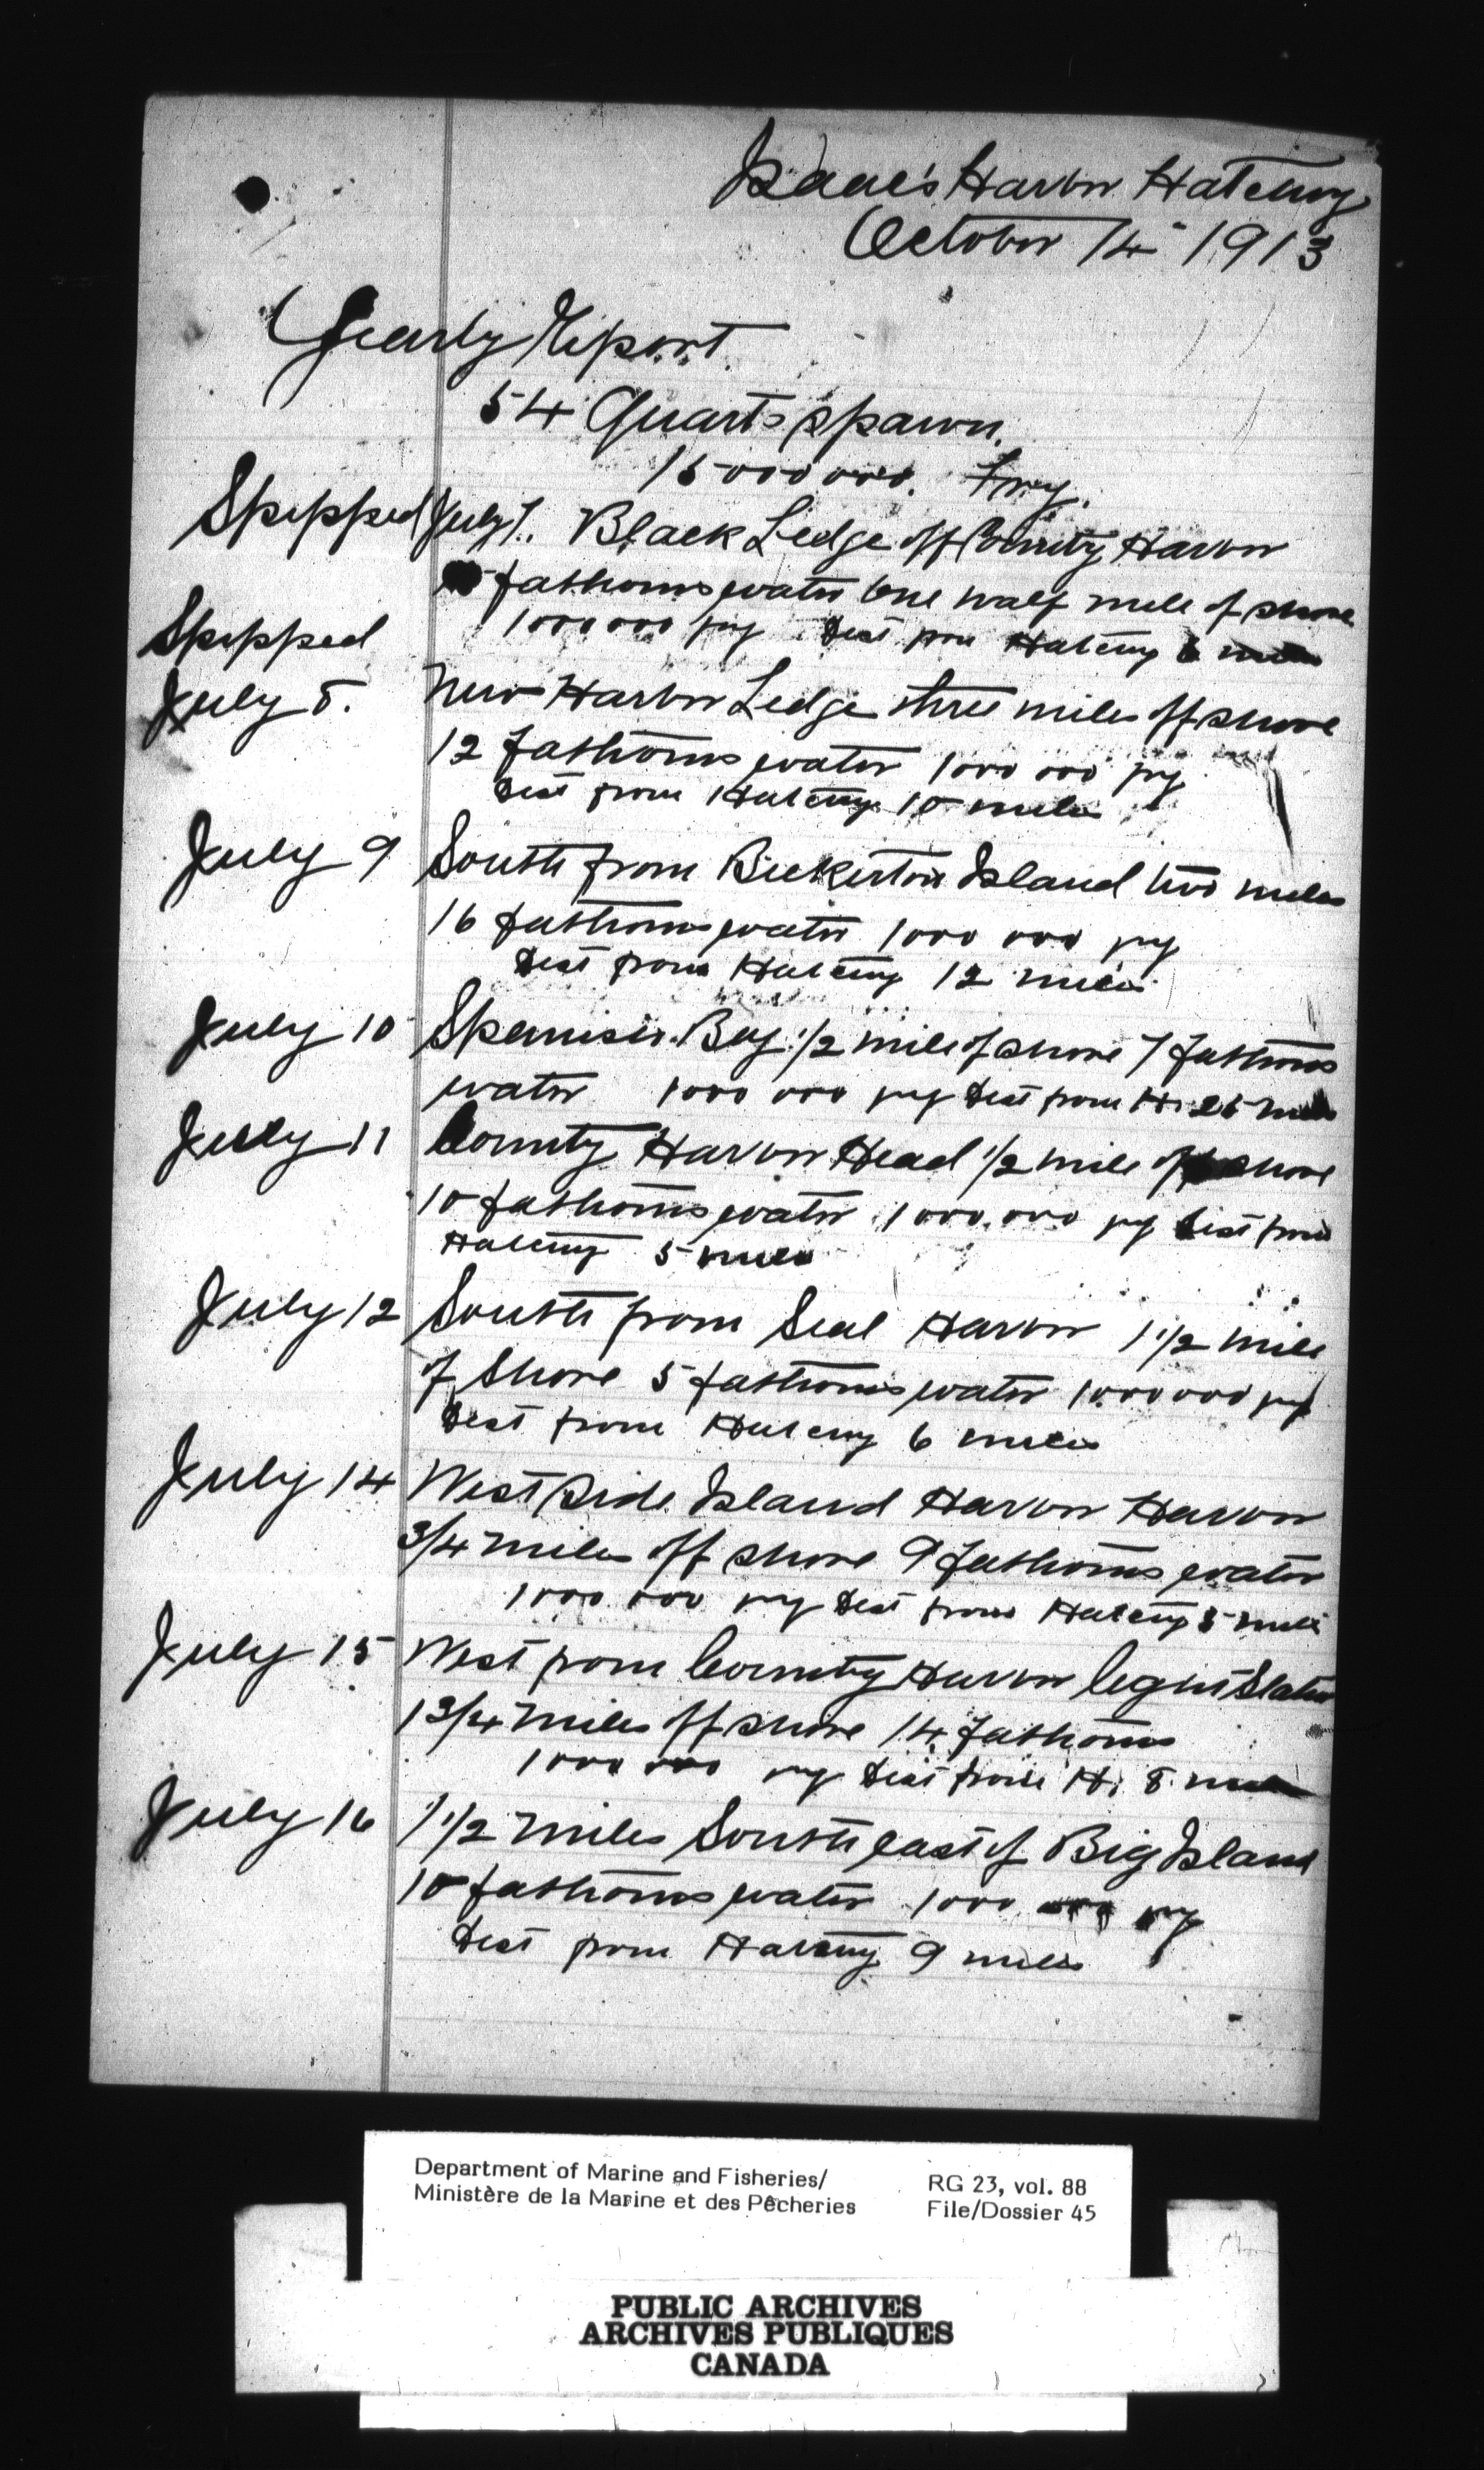 Isaac's Harbor Hatchery
October 14" 1913
Yearly Report
54 Quarts spawn.
15000000. Fry.
Shipped July 7. Black Ledge off Country Harbor
fathoms water One half mile of shore
1000000 fry Dist from Hatchery 6 miles
Shipped
July 8. New Harbor Ledge three miles off shore
12 fathoms water 1000 000 fry
Dist from Hatchery 10 miles
July 9 South from Bickerton Island two miles
16 fathoms water 1000 000 fry
Dist from Hatchery 12 miles
July 10 Spanish Bay 1/2 mile of shore 7 fathoms
water 1000 000 fry Dist from H. 25 miles
July 11 Country Harbor Head 1/2 mile off shore
10 fathoms water 1000.000 fry Dist from
Hatchery 5 miles
July 12 South from Seal Harbor 1 1/2 mile
of Shore 5 fathoms water 1000000 fry
Dist from Hatchery 6 miles
July 14 West Side Island Harbor Harbor
3/4 miles off shore 9 fathoms water
1000 000 fry Dist from Hatchery 5 miles
July 15 West from Country Harbor light Station
1 3/4 miles off shore 14 fathoms
1000 000 fry Dist from H. 8 miles
July 16 1 1/2 miles South east of Big Island
10 fathoms water 1000 000 fry
Dist from Hatchery 9 miles
Department of Marine and Fisheries/ RG 23, vol. 88
Ministère de la Marine et des Pêcheries File/Dossier 45
PUBLIC ARCHIVES
ARCHIVES PUBLIQUES
CANADA